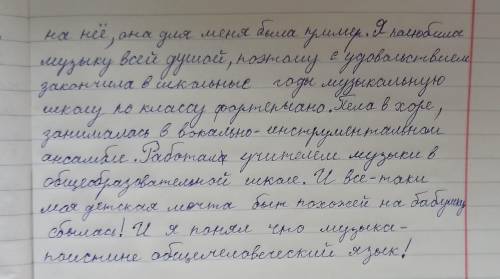 на неё, она для меня была пример. Я полюбила
музыку всей душой, поэтому с удовольствием
закончила в школьные годы музыкальную
школу по классу фортепьяно. Пела в хоре,
занималась в вокально-инструментальном
ансамбле. Работала учителем музыки в
общеобразовательной школе. И все-таки
моя детская мечта быть похожей на бабушку
сбылась! И я понял что музыка-
поистине общечеловеческий язык!